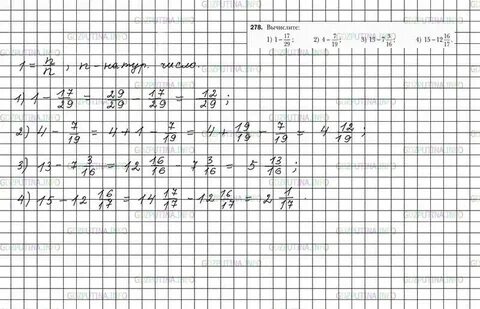 278. Вычислите:
1) 1 − 17/29; 2) 4 − 7/19; 3) 13 − 7 3/16; 4) 15 − 12 16/17.
1 = n/n, n - натур. число.
1) 1 − 17/29 = 29/29 − 17/29 = 12/29;
2) 4 − 7/19 = 4 + 1 − 7/19 = 4 + 19/19 − 7/19 = 4 12/19;
3) 13 − 7 3/16 = 12 16/16 − 7 3/16 = 5 13/16;
4) 15 − 12 16/17 = 14 17/17 − 12 16/17 = 2 1/17.
GUZPUTINA.INFO